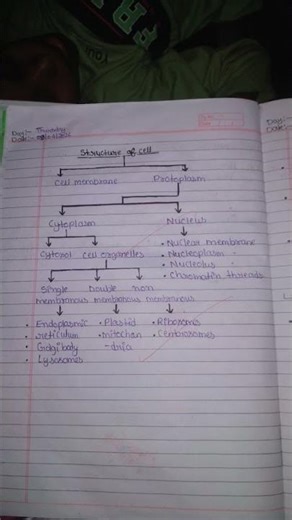 Day:- Thursday
Date:-
Structure of cell
Cell membrane Protoplasm
Cytoplasm Nucleus
Cytosol cell organelles
• Nuclear membrane
• Nucleoplasm
• Nucleolus
• Chromatin threads
Single Double non
membranous membranous membranous
• Endoplasmic • Plastid • Ribosomes
reticulum • mitochon • Centrosomes
• Golgi body -dria
• Lysosomes